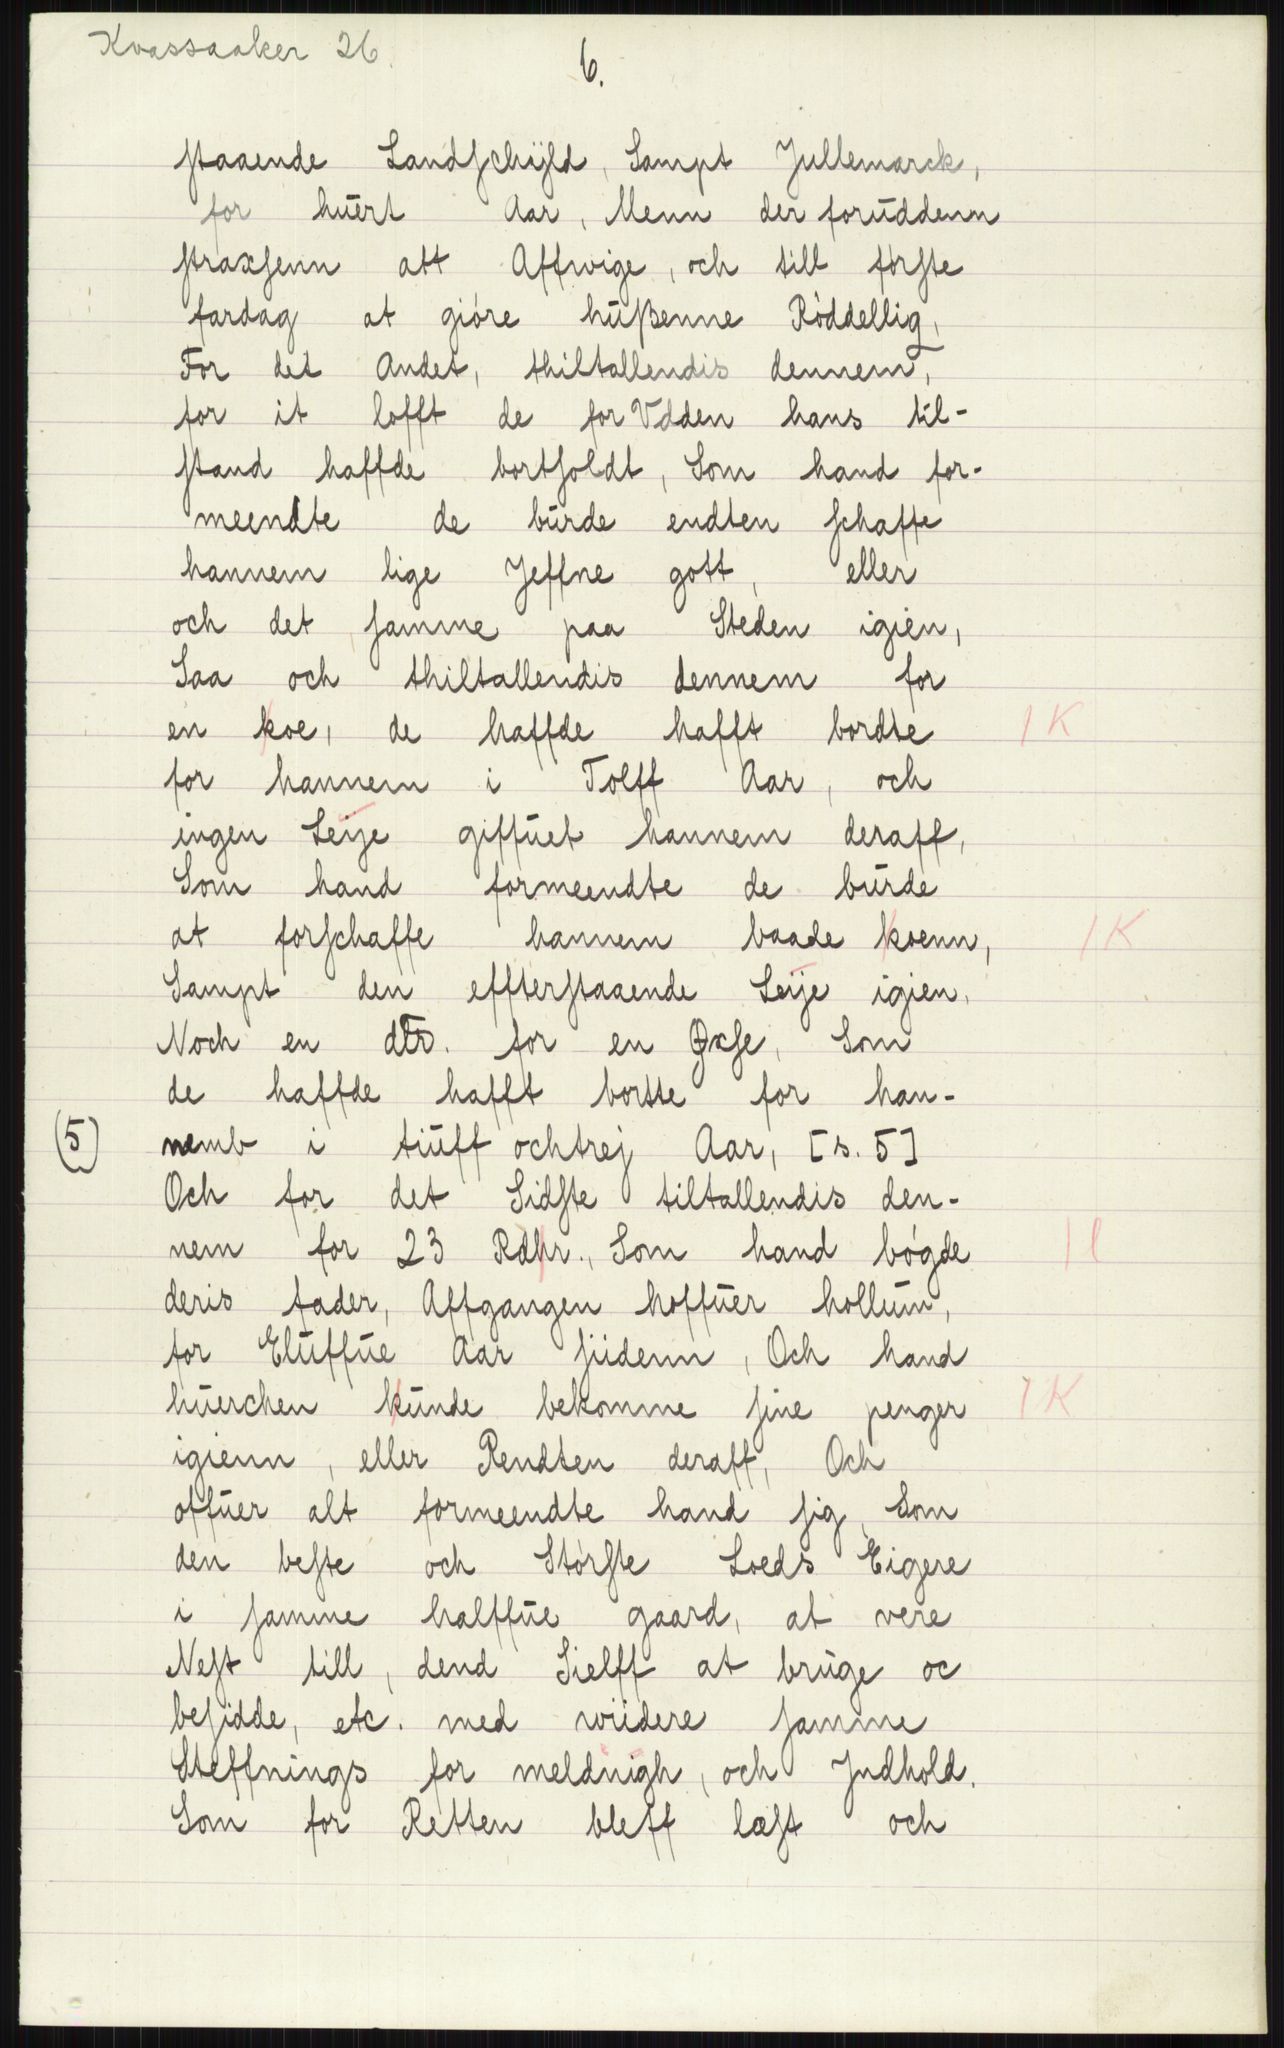 Kvassaaker 26.
6.
staaende Landschÿld, Sampt Jullemarck,
for huert Aar, Menn der foruddenn
straxsenn att Affwige, och till første
fardag at giøre hußenne Røddellig,
For det Andet, thiltallendis dennem,
for it lofft de for Vdden hans til-
stand haffde bortsoldt, Som hand for-
meendte de burde endten schaffe
hannem lige Jeffne gott, eller
och det samme paa Steden igien,
Saa och thiltallendis dennem for
en koe, de haffde hafft bordte 1 K
for hannem i Tolff Aar, och
ingen Leije giffuet hannem deraff,
Som hand formeendte de burde
at forschaffe hannem baade koenn, 1 K
Sampt den effterstaaende Leije igien,
Noch en dtr. for en Oxse, Som
de haffde hafft bortte for han-
(5) nemb i tiuff ochtrej Aar, [s. 5]
Och for det Sidste tiltallendis den-
nem for 23 Rdhr., Som hand bøgde 1 l
deris fader, Affgangen hoffuer hollum,
for Eluffue Aar siidenn, Och hand
huerchen kunde bekomme sine penger 1 K
igienn, eller Rendten deraff, Och
offuer alt formeendte hand sig, Som
den beste och Største Loeds Eigere
i samme halffue gaard, at vere
Nest till, dend Sielff at bruge oc
besidde, etc. med wiidere samme
Steffnings for meldnigh, och Jndhold.
Som for Retten bleff læst och